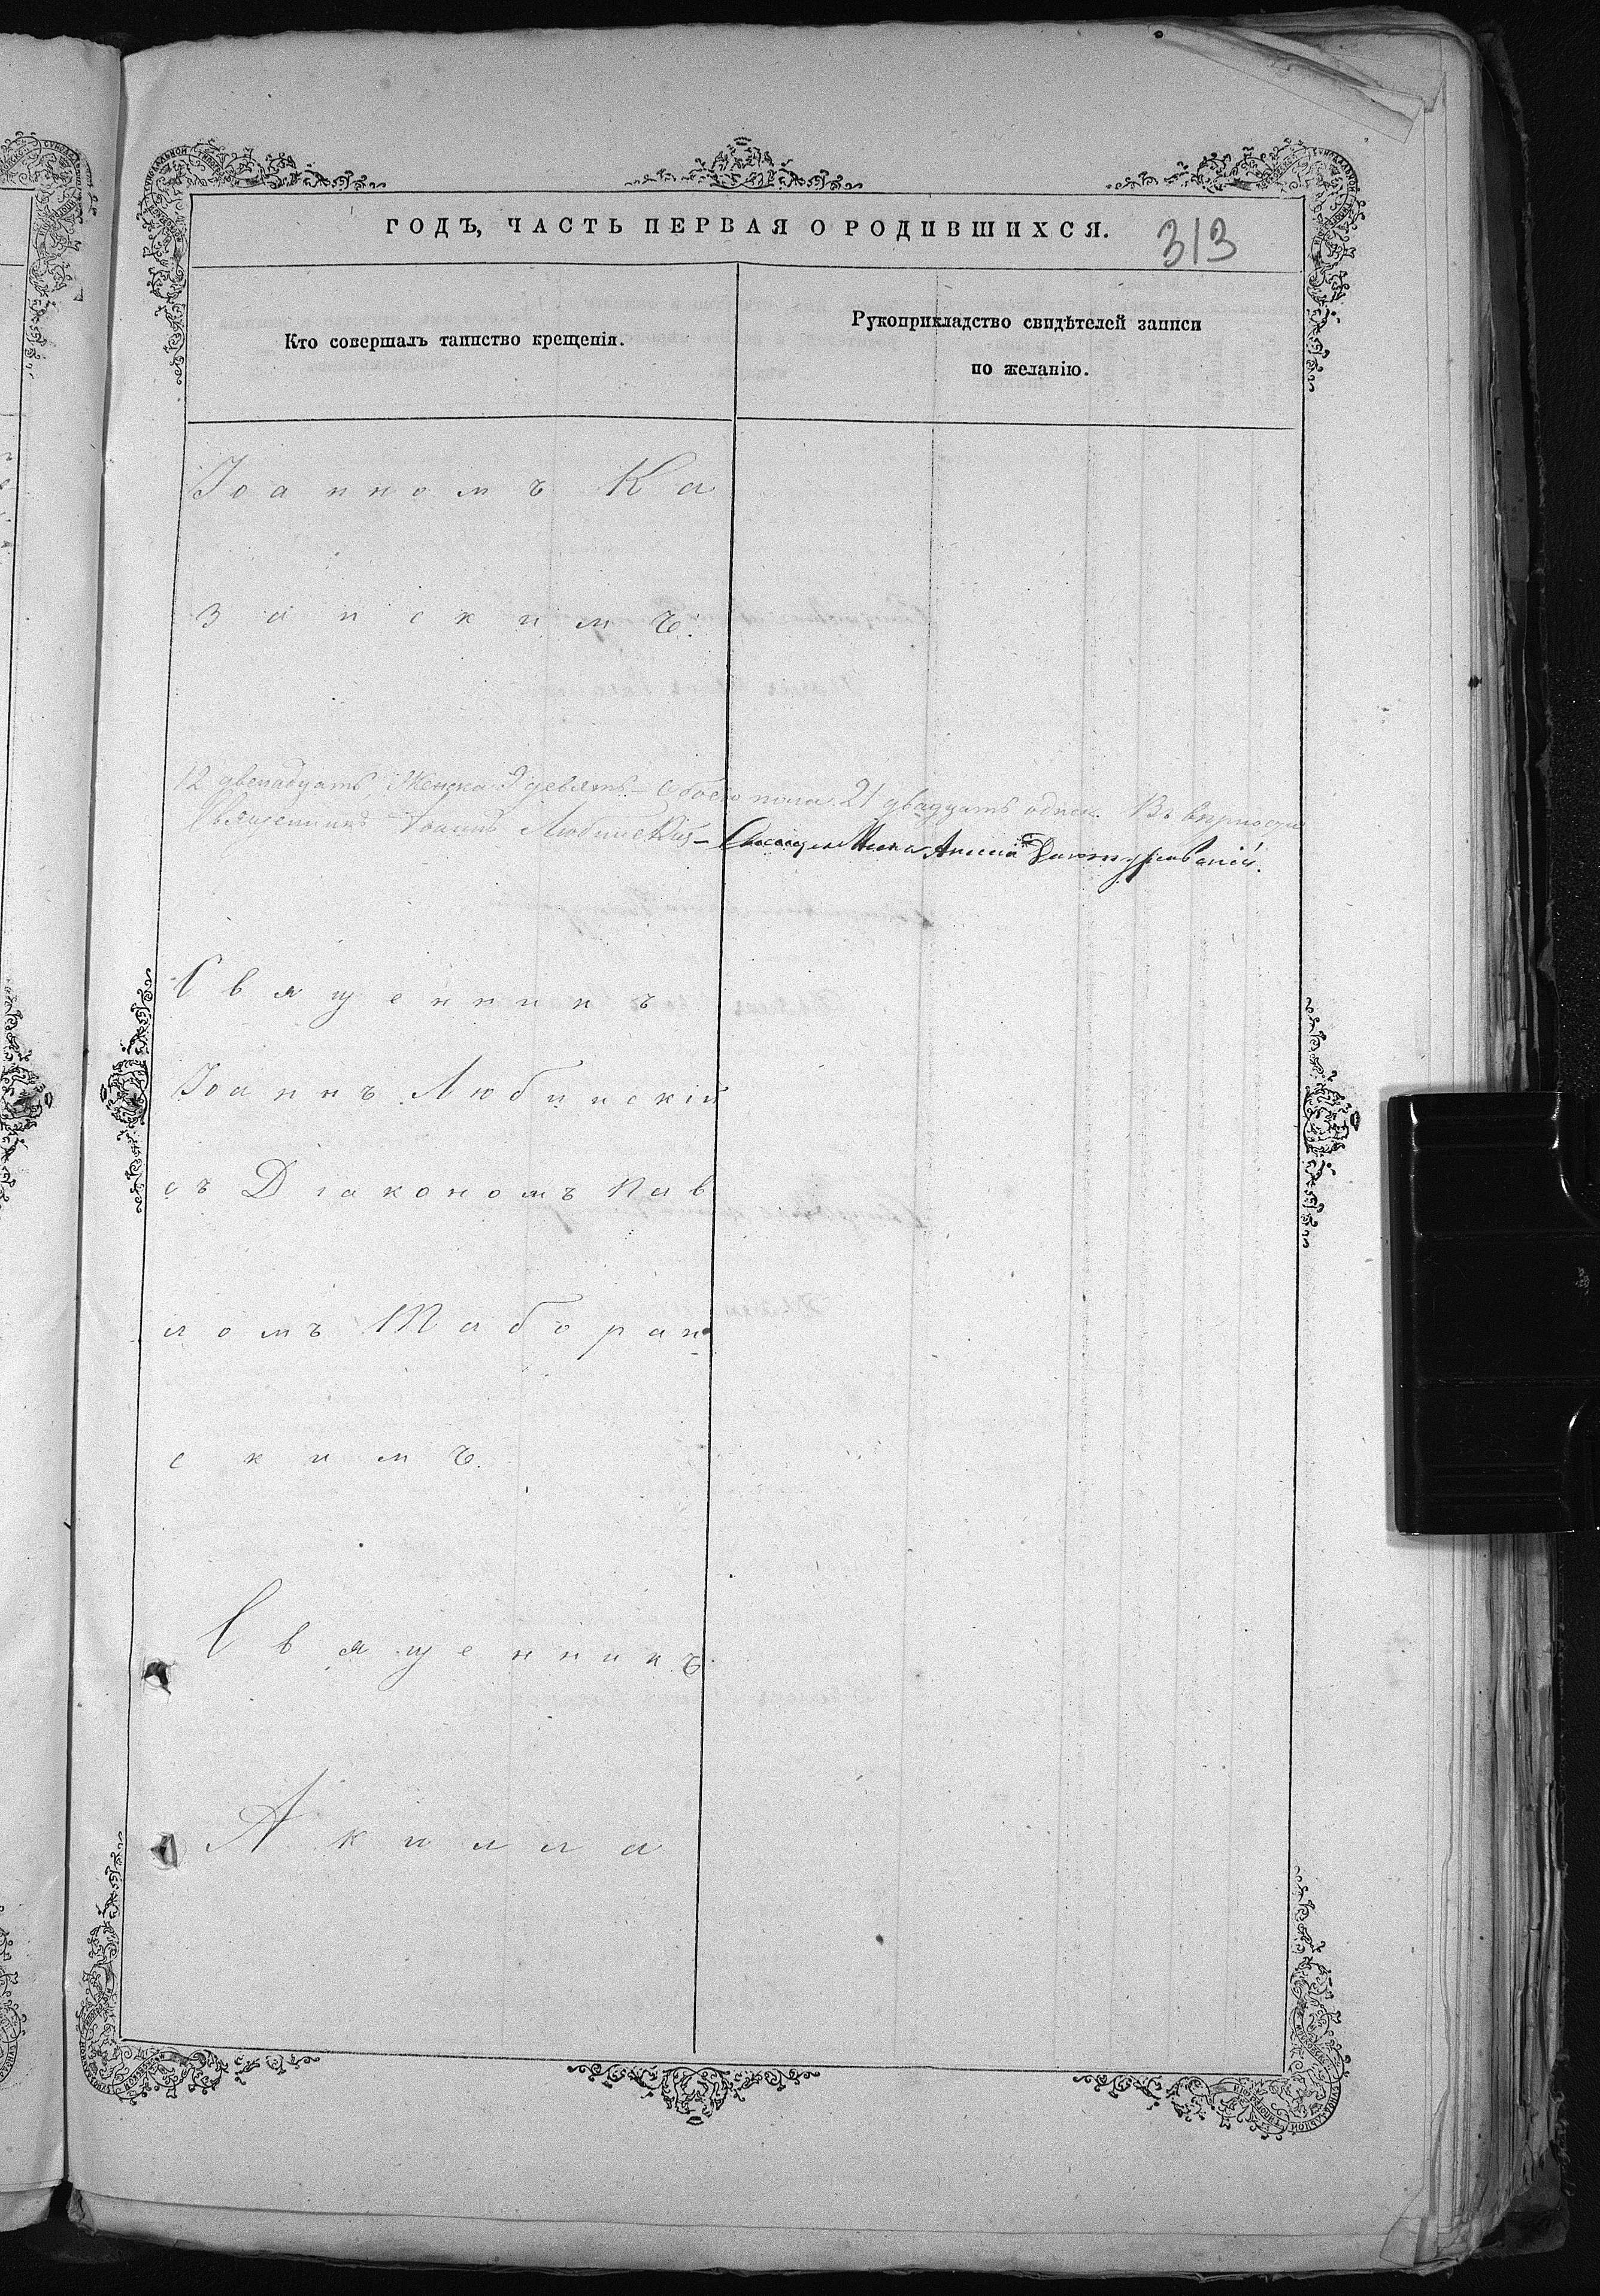 ГОДЪ, ЧАСТЬ ПЕРВАЯ О РОДИВШИХСЯ. 313
Кто совершалъ таинство крещенія.
Рукоприкладство свидѣтелей записи
по желанію.
Іоанномъ Ка
занскимъ.
12 двенадцать, Женска 9 девять – Обоего пола 21 двадцать одинъ. Въ верности
Священникъ Іоаннъ Любинскій –
Священникъ
Іоаннъ Любинскій
съ Діакономъ Пав
ломъ Таборан
скимъ.
Священникъ
Акилла